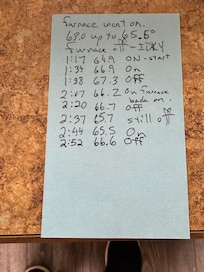 furnace went on.
63.0 up to 65.5°
furnace off - IDKY
1:17 64.9 ON - start
1:34 66.9 On
1:38 67.3 Off
2:07 66.2 On furnace
back on.
2:20 66.7 Off
2:37 65.7 still off
2:44 65.5 On
2:52 66.6 Off